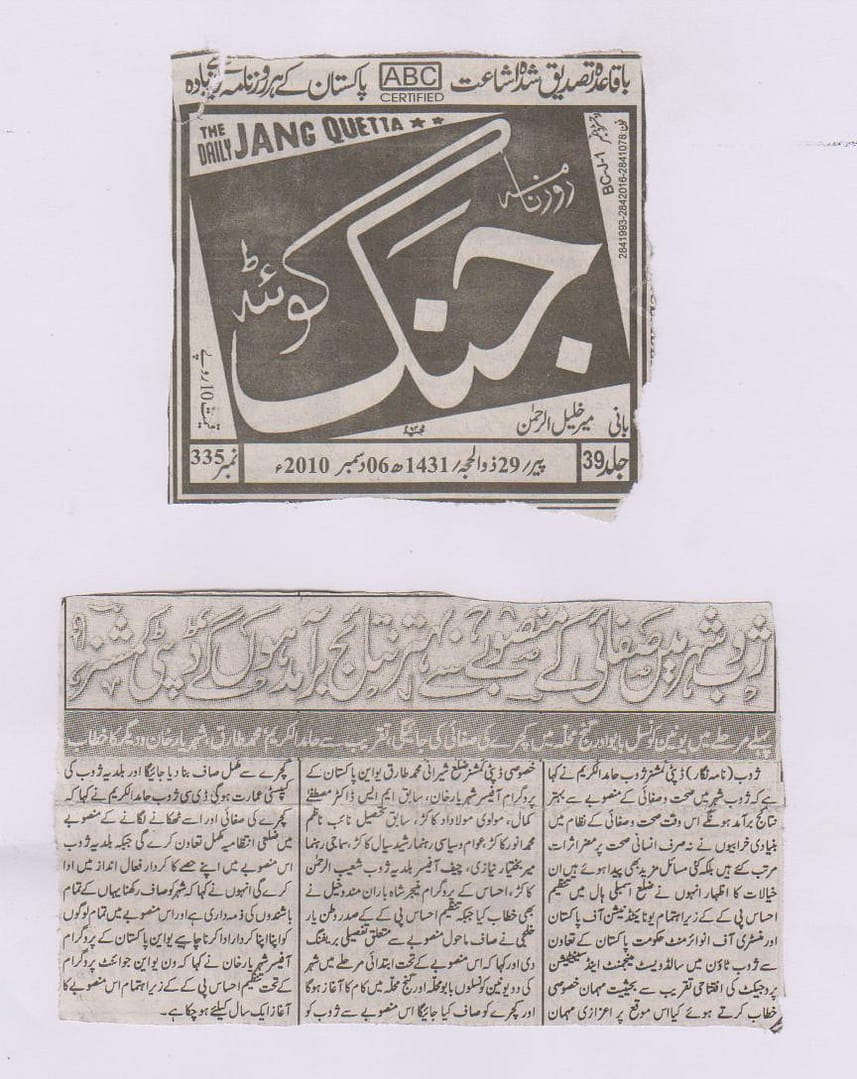 باقاعدہ تصدیق شدہ اشاعت ABC CERTIFIED پاکستان کے ہر روزنامہ سے زیادہ
THE DAILY JANG QUETTA
روزنامہ
جنگ
کوئٹہ
BC-J-1
فون: 2841078-2842016-2841993
قیمت 10 روپے
بانی میر خلیل الرحمٰن
جلد 39
پیر/ 29 ذوالحجہ/ 1431ھ 06 دسمبر 2010ء
نمبر 335
ژوب شہر میں صفائی کے منصوبے سے بہتر نتائج برآمد ہوں گے ڈپٹی کمشنر
پہلے مرحلے میں یونین کونسل بابو اور گنج محلہ میں کچرے کی صفائی کی جائیگی، تقریب سے حامد الکریم، محمد طارق، شہریار خان و دیگر کا خطاب
ژوب (نامہ نگار) ڈپٹی کمشنر ژوب حامد الکریم نے کہا
ہے کہ ژوب شہر میں صحت و صفائی کے منصوبے سے بہتر
نتائج برآمد ہونگے اس وقت صحت و صفائی کے نظام میں
بنیادی خرابیوں نے نہ صرف انسانی صحت پر مضر اثرات
مرتب کئے ہیں بلکہ کئی مسائل مزید بھی پیدا ہوئے ہیں ان
خیالات کا اظہار انہوں نے ضلع اسمبلی ہال میں تنظیم
احساس پی کے کے زیر اہتمام یونائیٹڈ نیشن آف پاکستان
اور منسٹری آف انوائرمنٹ حکومت پاکستان کے تعاون
سے ژوب ٹاؤن میں سالڈ ویسٹ مینجمنٹ اینڈ سینیٹیشن
پروجیکٹ کی افتتاحی تقریب سے بحیثیت مہمان خصوصی
خطاب کرتے ہوئے کیا اس موقع پر اعزازی مہمان
خصوصی ڈپٹی کمشنر ضلع شیرانی محمد طارق یو این پاکستان کے
پروگرام آفیسر شہریار خان، سابق ایم ایس ڈاکٹر مصطفےٰ
کمال، مولوی مولاداد کاکڑ، سابق تحصیل نائب ناظم
محمد انور کاکڑ، عوام و سیاسی رہنما رشید سیال کاکڑ، سماجی رہنما
میر بختیار نیازی، چیف آفیسر بلدیہ ژوب شعیب الرحمٰن
کاکڑ، احساس کے پروگرام منیجر شاہ باران مندوخیل نے
بھی خطاب کیا جبکہ تنظیم احساس پی کے کے صدر وطن یار
خلجی نے صاف ماحول منصوبے سے متعلق تفصیلی بریفنگ
دی اور کہا کہ اس منصوبے کے تحت ابتدائی مرحلے میں شہر
کی دو یونین کونسلوں بابو محلہ اور گنج محلہ میں کام کا آغاز ہوگا
اور کچرے کو صاف کیا جائیگا اس منصوبے سے ژوب کو
کچرے سے مکمل صاف بنا دیا جائیگا اور بلدیہ ژوب کی
عمارت ہوگی ڈی سی ژوب حامد الکریم نے کہا کہ
کچرے کی صفائی اور اسے ٹھکانے لگانے کے منصوبے
میں ضلعی انتظامیہ مکمل تعاون کرے گی جبکہ بلدیہ ژوب
اس منصوبے میں اپنے حصے کا کردار فعال انداز میں ادا
کرے گی انہوں نے کہا کہ شہر کو صاف رکھنا یہاں کے تمام
باشندوں کی ذمہ داری ہے اور اس منصوبے میں تمام لوگوں
کو اپنا اپنا کردار ادا کرنا چاہیے یو این پاکستان کے پروگرام
آفیسر شہریار خان نے کہا کہ ون یو این جوائنٹ پروگرام
کے تحت تنظیم احساس پی کے کے زیر اہتمام اس منصوبے کا
آغاز ایک سال کیلئے ہو چکا ہے۔